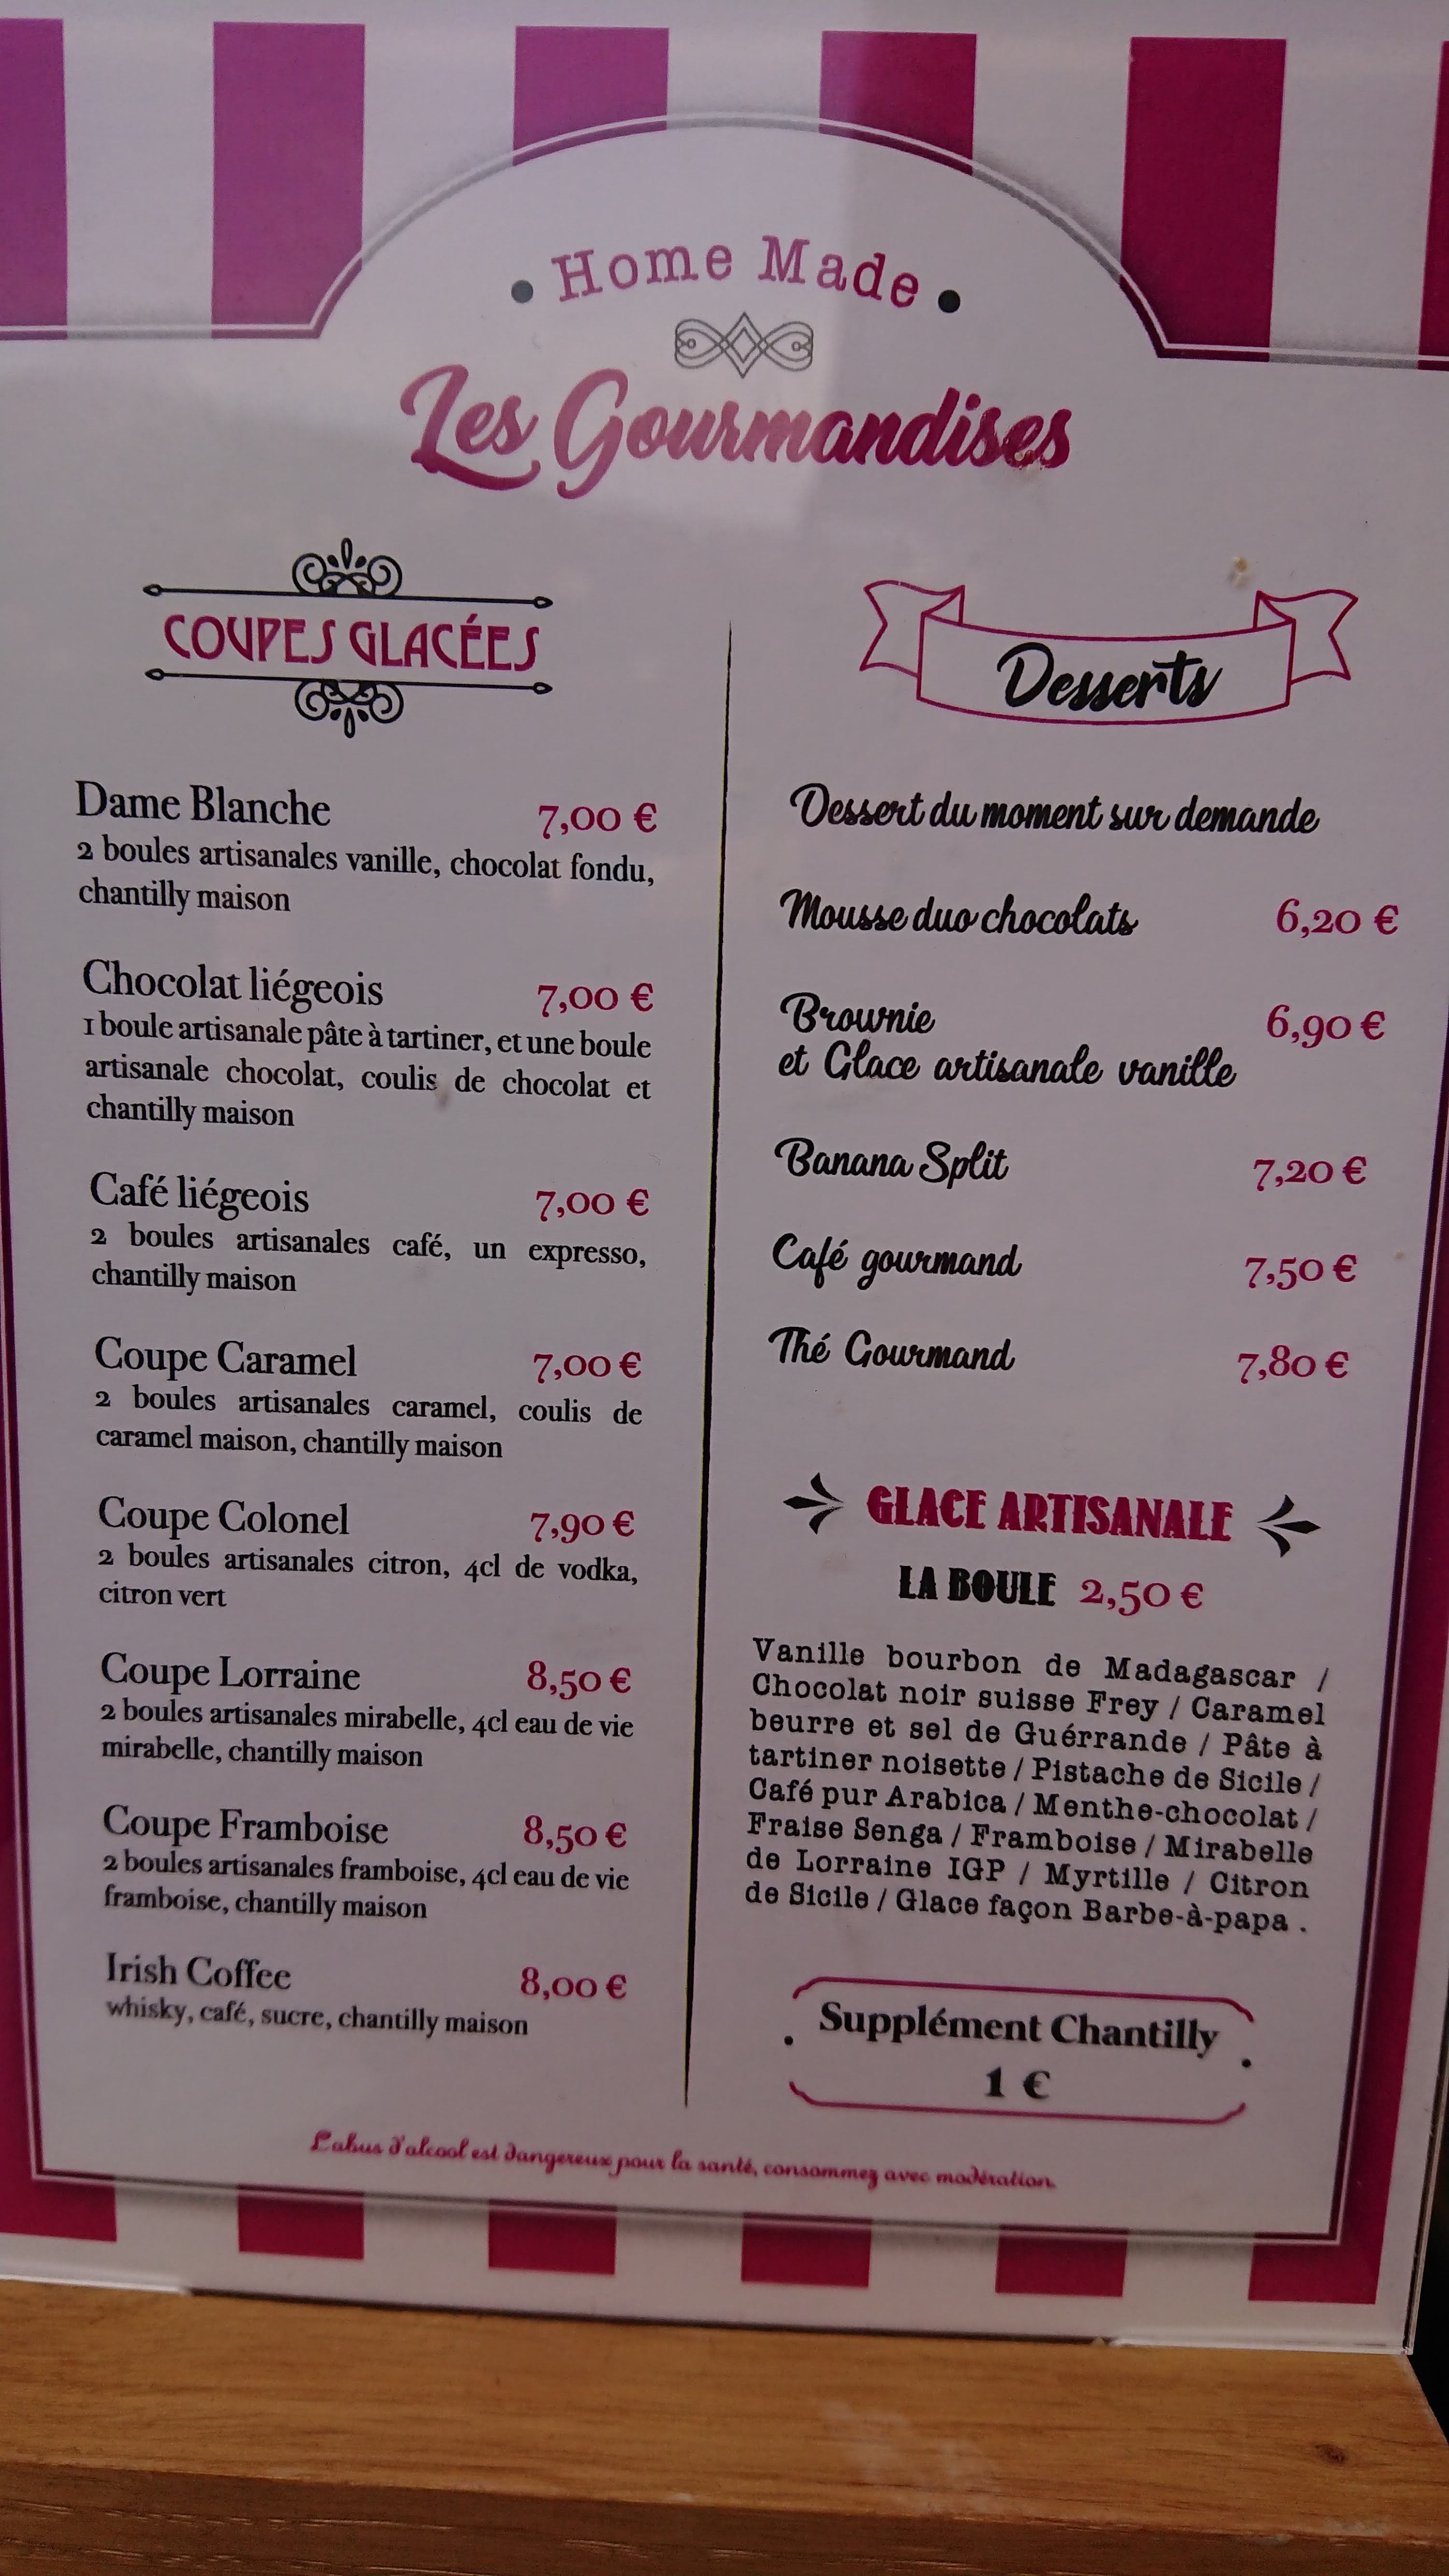 • Home Made •
Les Gourmandises
COUPES GLACÉES
Dame Blanche 7,00 €
2 boules artisanales vanille, chocolat fondu,
chantilly maison
Chocolat liégeois 7,00 €
1 boule artisanale pâte à tartiner, et une boule
artisanale chocolat, coulis de chocolat et
chantilly maison
Café liégeois 7,00 €
2 boules artisanales café, un expresso,
chantilly maison
Coupe Caramel 7,00 €
2 boules artisanales caramel, coulis de
caramel maison, chantilly maison
Coupe Colonel 7,90 €
2 boules artisanales citron, 4cl de vodka,
citron vert
Coupe Lorraine 8,50 €
2 boules artisanales mirabelle, 4cl eau de vie
mirabelle, chantilly maison
Coupe Framboise 8,50 €
2 boules artisanales framboise, 4cl eau de vie
framboise, chantilly maison
Irish Coffee 8,00 €
whisky, café, sucre, chantilly maison
Desserts
Dessert du moment sur demande
Mousse duo chocolats 6,20 €
Brownie 6,90 €
et Glace artisanale vanille
Banana Split 7,20 €
Café gourmand 7,50 €
Thé Gourmand 7,80 €
GLACE ARTISANALE
LA BOULE 2,50 €
Vanille bourbon de Madagascar /
Chocolat noir suisse Frey / Caramel
beurre et sel de Guérrande / Pâte à
tartiner noisette / Pistache de Sicile /
Café pur Arabica / Menthe-chocolat /
Fraise Senga / Framboise / Mirabelle
de Lorraine IGP / Myrtille / Citron
de Sicile / Glace façon Barbe-à-papa .
Supplément Chantilly
1 €
L'abus d'alcool est dangereux pour la santé, consommez avec modération.